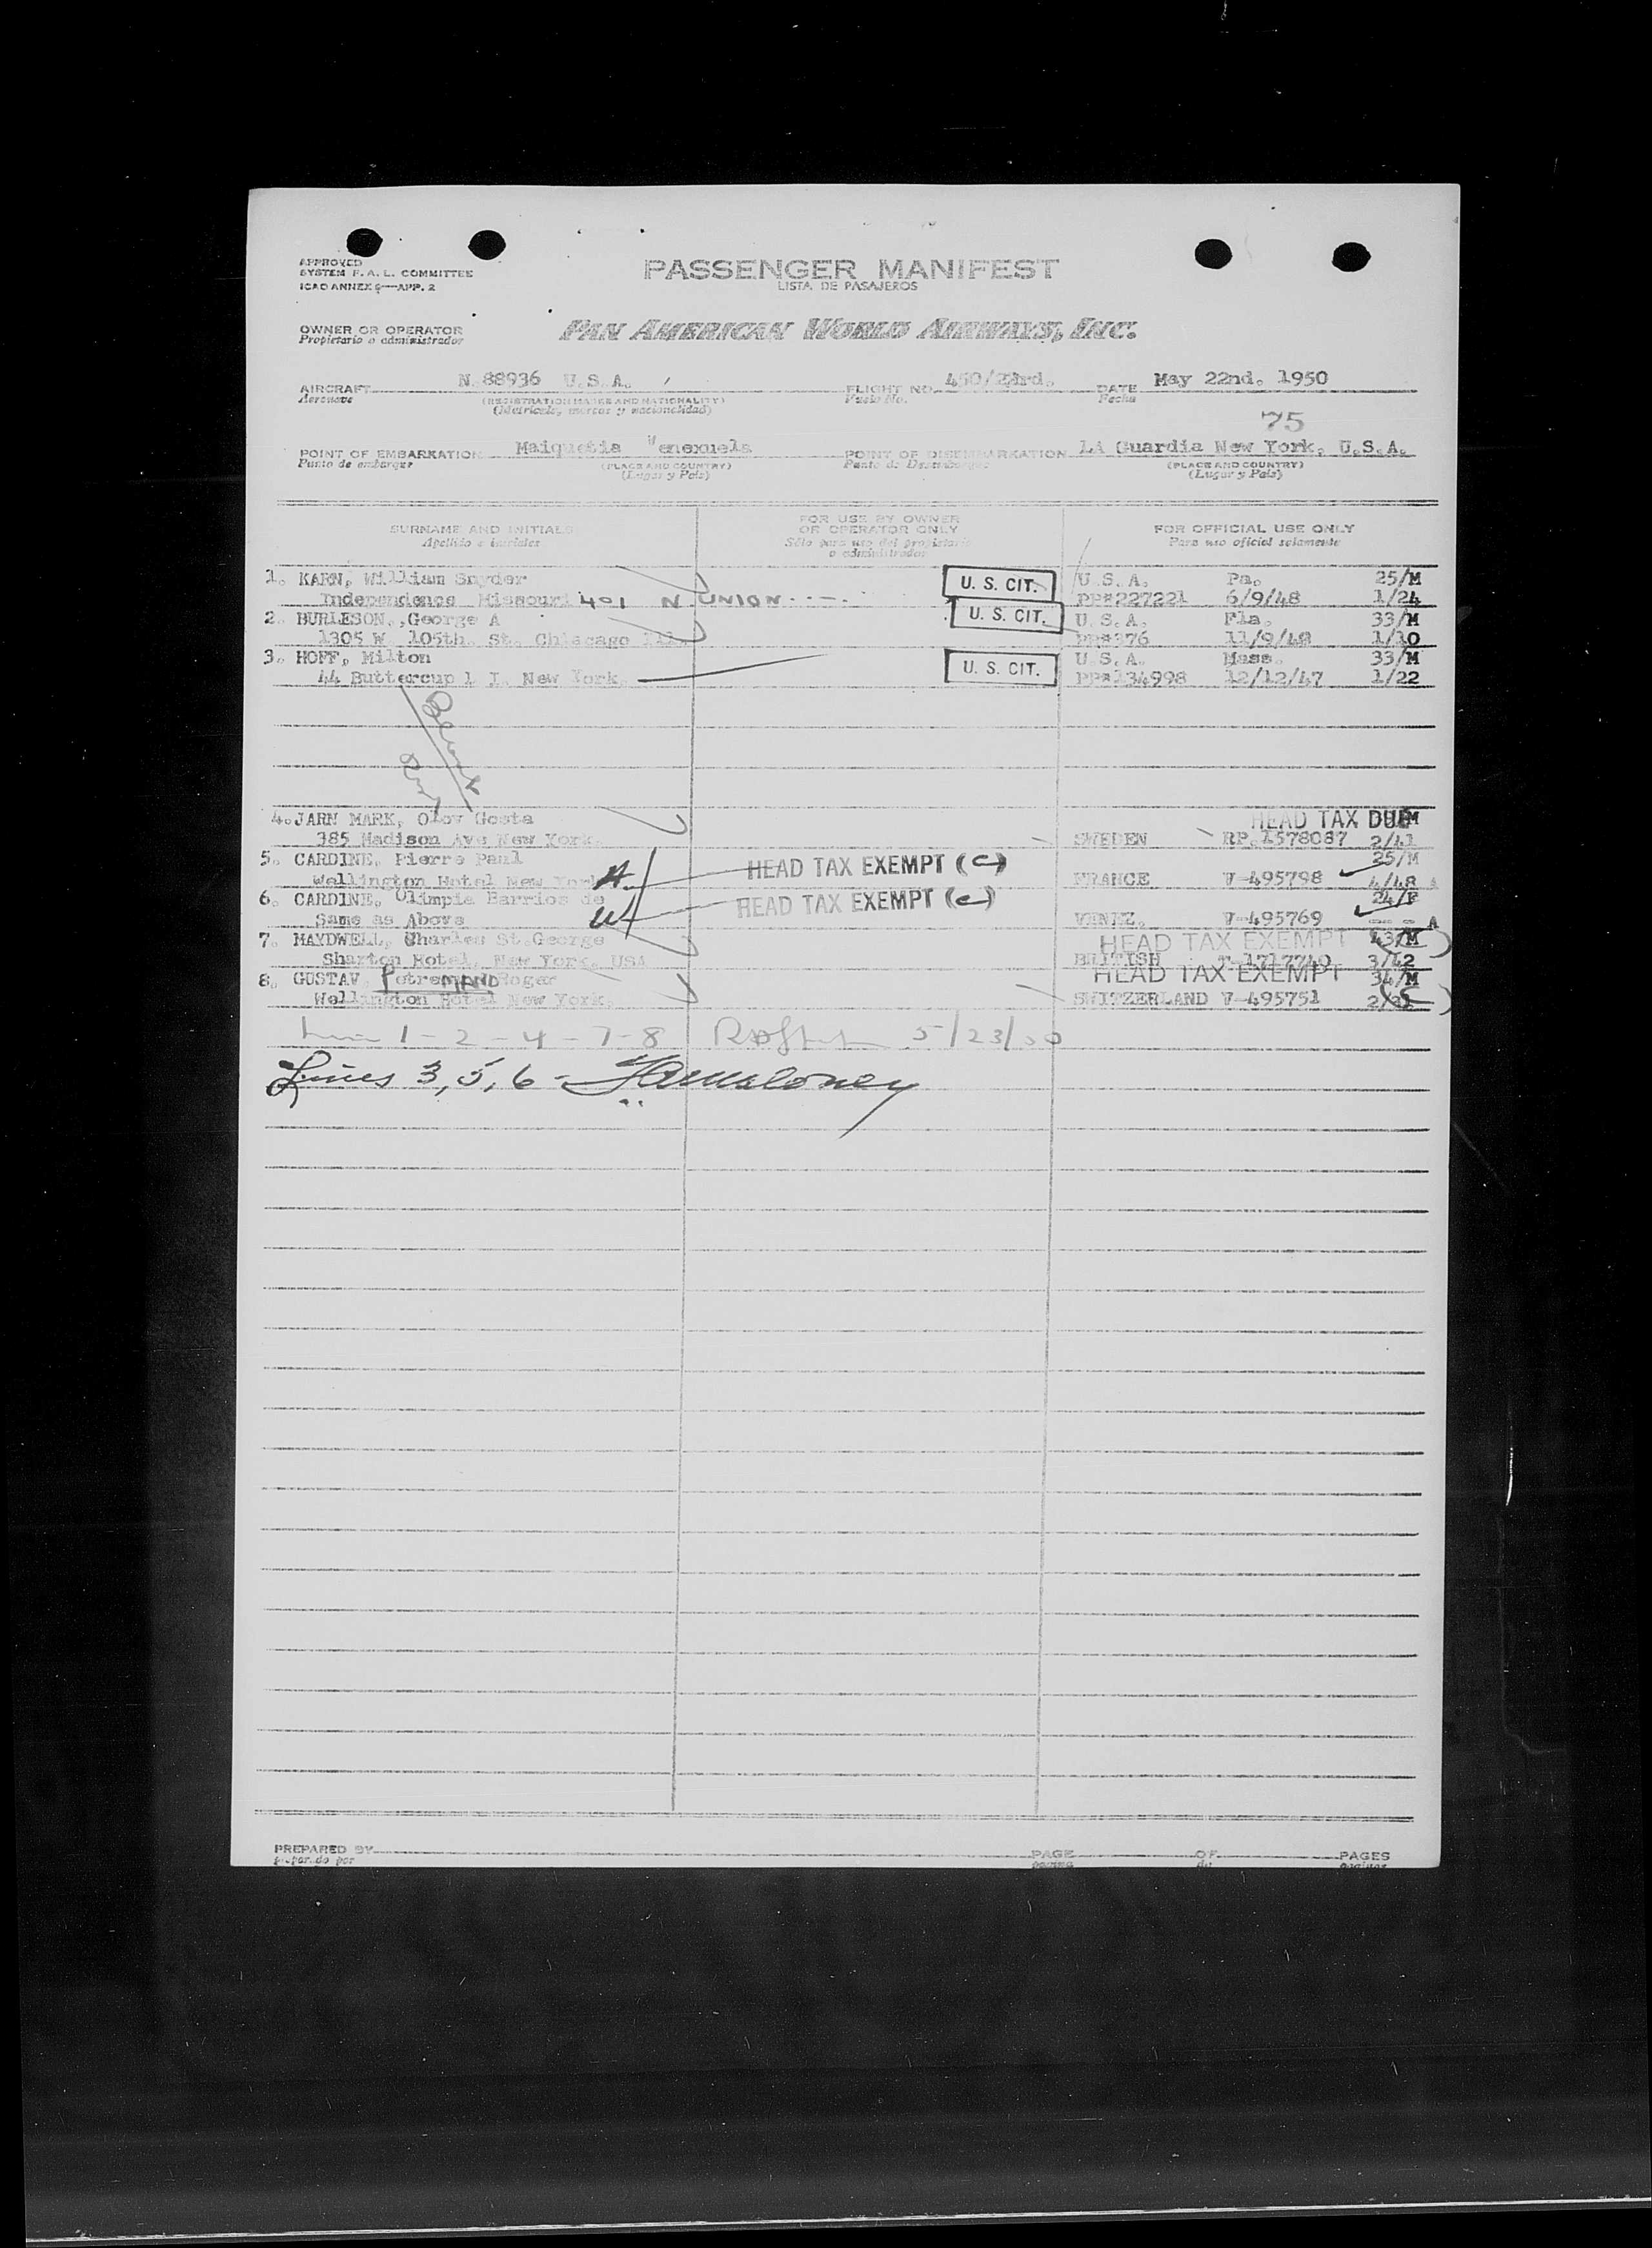 APPROVED
SYSTEM F. A. L. COMMITTEE
ICAO ANNEX 9—APP. 2
PASSENGER MANIFEST
LISTA DE PASAJEROS
OWNER OR OPERATOR
Propietario o administrador
PAN AMERICAN WORLD AIRWAYS, INC.
AIRCRAFT N 88936 U.S.A. FLIGHT NO. 450/ DATE May 22nd. 1950
Aeronave (REGISTRATION MARKS AND NATIONALITY) Vuelo No. Fecha
(Matricula, marcas y nacionalidad)
75
POINT OF EMBARKATION Maiquetia Venexuela POINT OF DISEMBARKATION LA Guardia New York, U.S.A.
Punto de embarque (PLACE AND COUNTRY) Punto de Desembarque (PLACE AND COUNTRY)
(Lugar y País) (Lugar y País)
SURNAME AND INITIALS FOR USE BY OWNER OR OPERATOR ONLY FOR OFFICIAL USE ONLY
Apellido e iniciales Sólo para uso del propietario o administrador Para uso oficial solamente
1. KARN, William Snyder U. S. CIT. U.S.A. Pa. 25/M
Independence Missouri 401 N UNION PP#227221 6/9/48 1/24
2. BURLESON,,George A U. S. CIT. U.S.A. Fla. 33/M
1305 W. 105th. St. Chiacago Ill. PP#376 11/9/48 1/10
3. HOFF, Milton U. S. CIT. U.S.A. Mass. 33/M
44 Buttercup l I. New York. PP#134998 12/12/47 1/22
4. JARN MARK, Olov Gosta HEAD TAX DUE
385 Madison Ave New York. SWEDEN RP.1578087 2/41
5. CARDINE, Pierre Paul HEAD TAX EXEMPT (C) 25/M
Wellington Hotel New York FRANCE V-495798 4/48
6. CARDINE, Olimpia Barrios de HEAD TAX EXEMPT (C) 24/F
Same as Above VENEZ. V-495769 A
7. MAYDWELL, Charles St.George HEAD TAX EXEMPT 43/M
Sharton Hotel, New York. USA BRITISH T-1717740 3/42
8. GUSTAV, Petremand Roger HEAD TAX EXEMPT 34/M
Wellington Hotel New York. SWITZERLAND V-495751
1 - 2 - 4 - 7 - 8 5/23/50
Lines 3, 5, 6 - Maloney
PREPARED BY PAGE OF PAGES